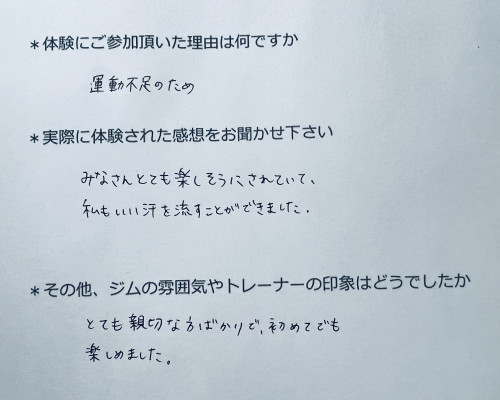 ＊体験にご参加頂いた理由は何ですか
運動不足のため
＊実際に体験された感想をお聞かせ下さい
みなさんとても楽しそうにされていて、
私もいい汗を流すことができました.
＊その他、ジムの雰囲気やトレーナーの印象はどうでしたか
とても親切な方ばかりで、初めてでも
楽しめました。